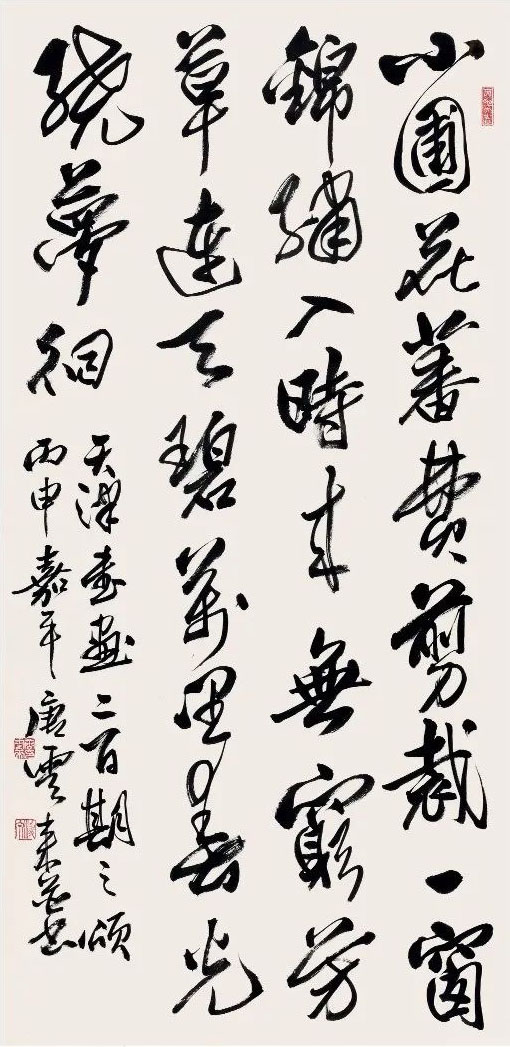 小圃花蕃费剪裁一窗
錦繡入時来無窮芳
草連天碧萬里春光
繞夢徊
天津書画二百期之頌
丙申嘉平唐雲来并書